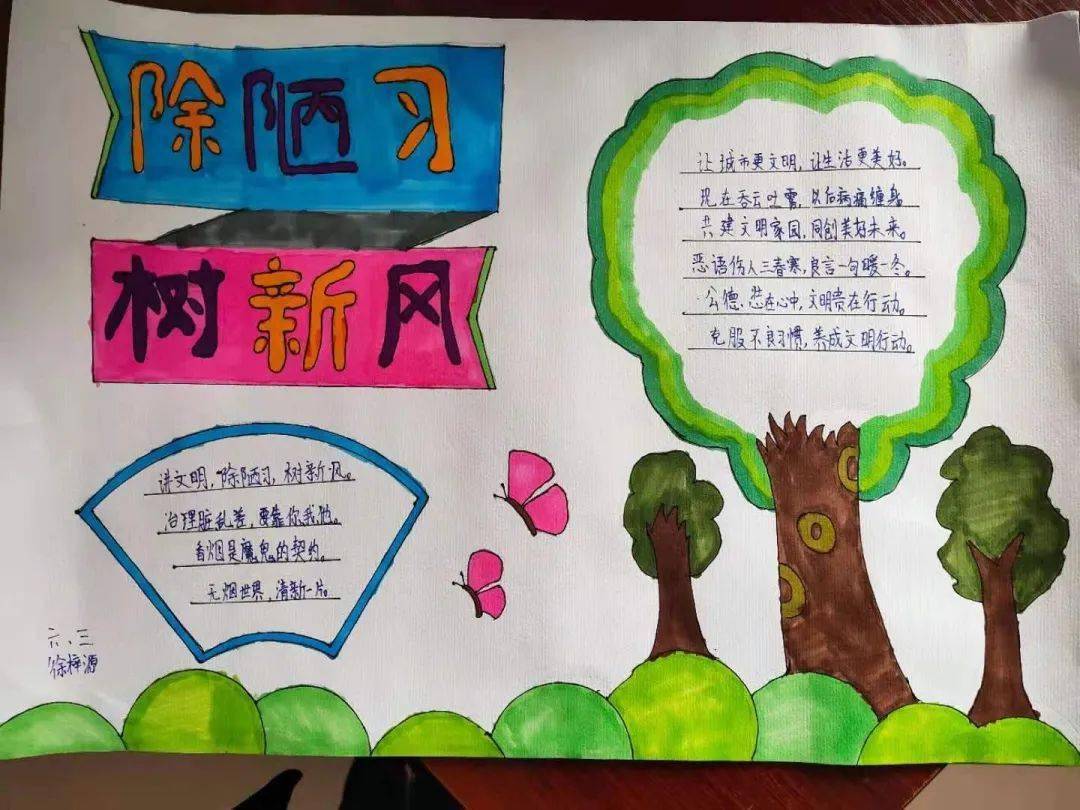 除陋习
树新风
让城市更文明，让生活更美好。
现在吞云吐雾，以后病痛缠身
共建文明家园，同创美好未来。
恶语伤人三春寒，良言一句暖一冬。
公德、装在心中，文明贵在行动。
克服不良习惯，养成文明行动。
讲文明，除陋习，树新风。
治理脏乱差，要靠你我他。
香烟是魔鬼的契约。
无烟世界，清新一片。
六、三
徐梓源